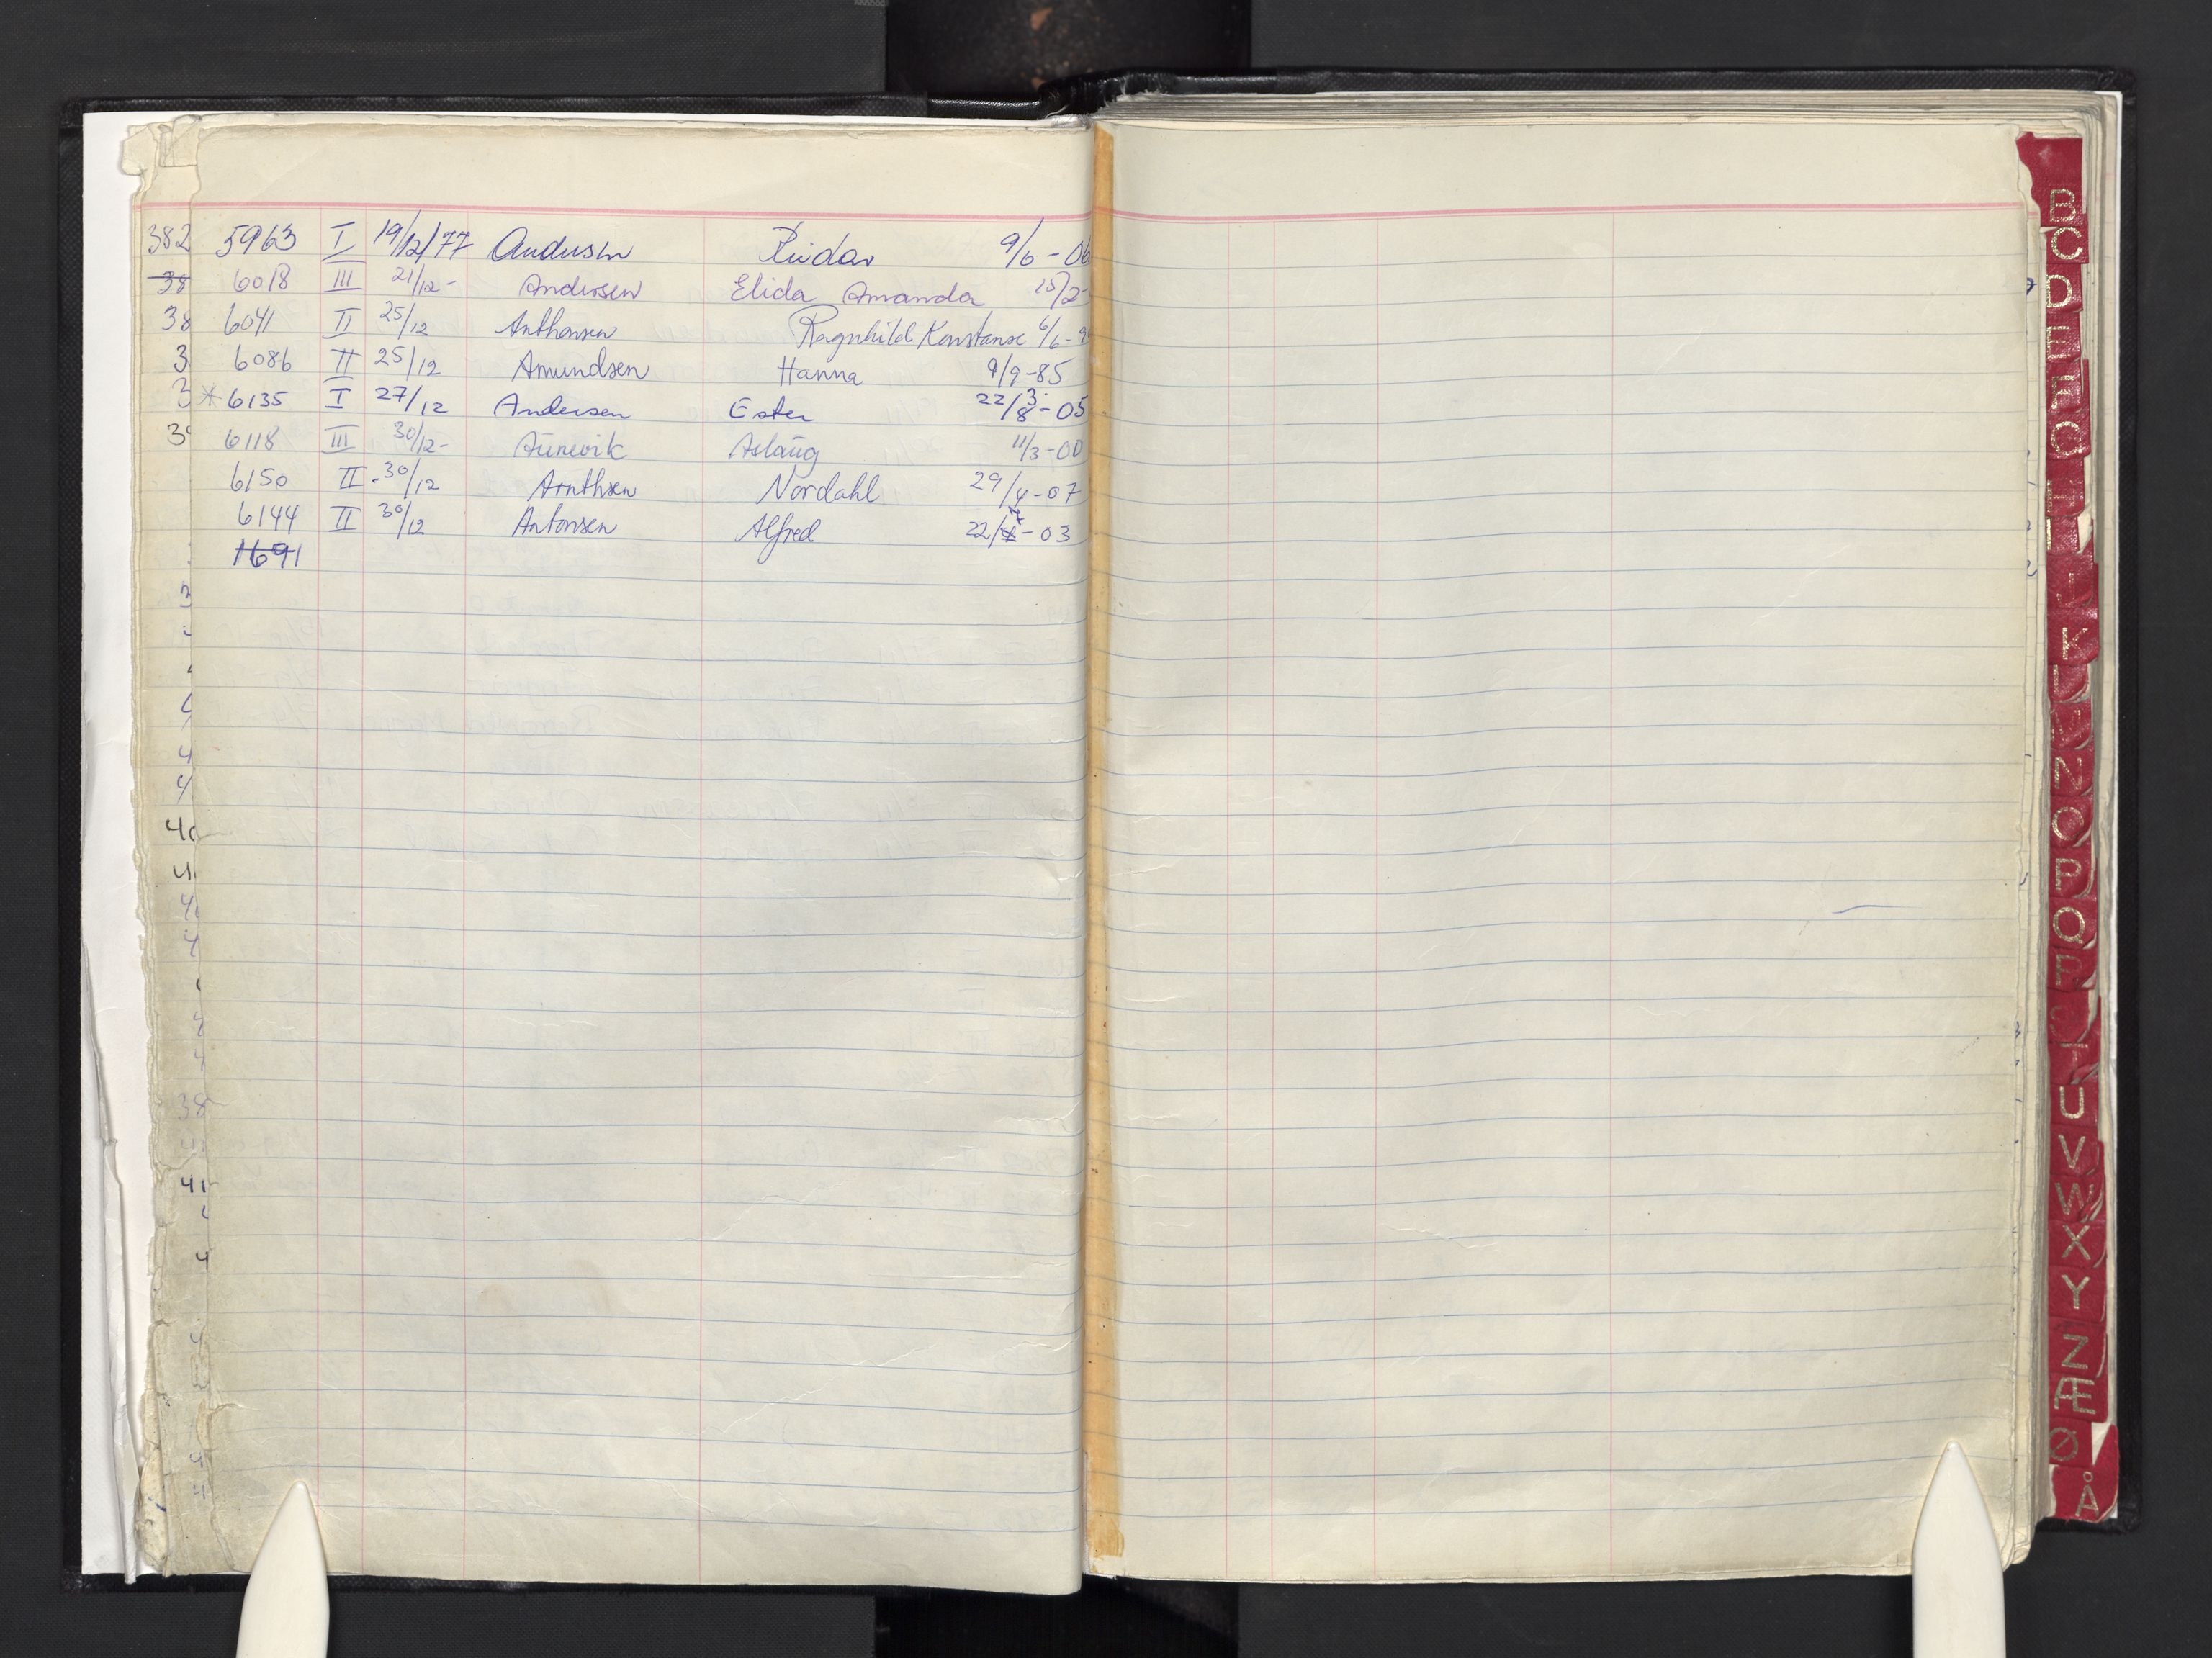 382 5963 I 19/12/77 Andersen Reidar 9/6 - 06
38 6018 III 21/12 - Andersen Elida Amanda 15/2-
38 6041 II 25/12 Anthonsen Ragnhild Konstanse 6/6 - 9
3 6086 II 25/12 Amundsen Hanna 9/9 - 85
3 * 6135 I 27/12 Andersen Ester 22/8 3 - 05
39 6118 III 30/12 - Aurevik Aslaug 11/3 - 00
6150 II - 30/12 Arnthsen Nordahl 29/4 - 07
6144 II 30/12 Antonsen Alfred 22/ - 03
1691
3
4
4
40
4
4
4
4
4
38
41
4
B
C
D
E
F
G
H
I
J
K
L
M
N
O
P
Q
R
S
T
U
V
W
X
Y
Z
Æ
Ø
Å